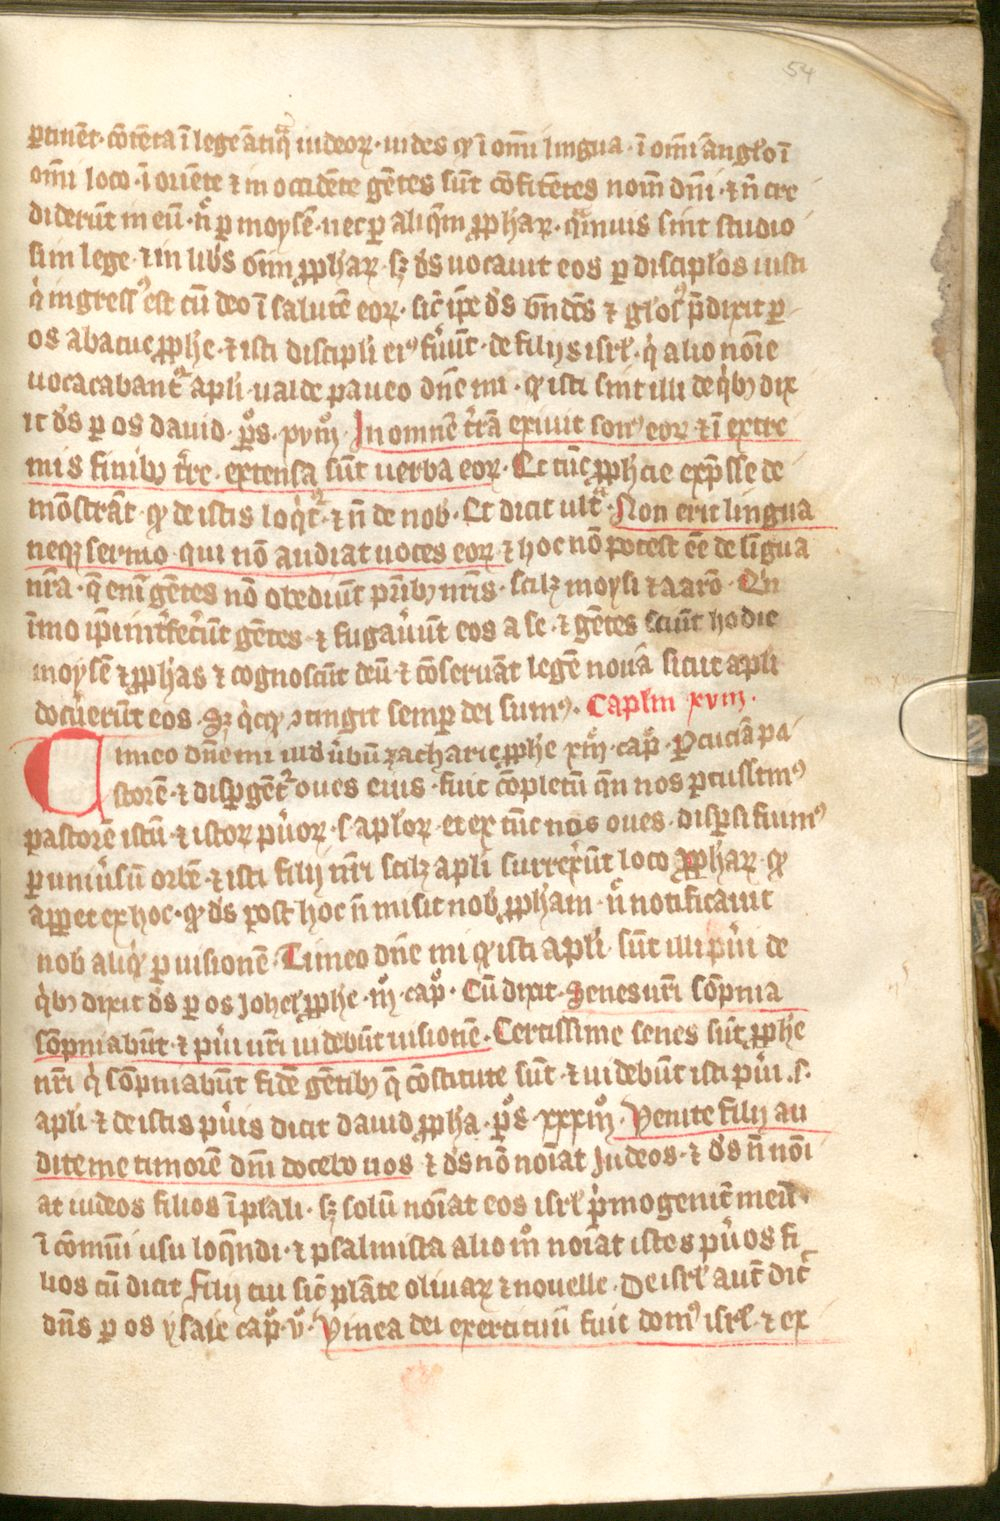 54
ꝑtinēt · cōtēta ī lege ātiq̄ iudeoꝝ · uides ꝙ ī om̄i lingua · ī om̄i āngło ī
om̄i loco · ī oriēte ⁊ in occidēte gētes sūt cōfitētes nom̄ dn̄i · ⁊ n̄ cre
diderūt in eū · n̄ ꝑ moysē · nec ꝑ aliq̄m ꝓphaꝝ · q̄muis sint studio
si in lege · ⁊ in libͦs om̄i ꝓphaꝝ sꝫ ds̄ uocauit eos ꝑ discipłos iusti
qͥ ingressꝰ est cū deo ī salutē eoꝝ · sic̄ ip̄e ds̄ bn̄dc̄s ⁊ glōs̄ p̄dixit ꝑ
os abacuc ꝓphe · ⁊ isti discipli eiꝰ fūnt · de filijs isrł · qͥ alio nōie
uocacabant̄ apłi · ualde paueo dn̄e mi · ꝙ isti sint illi de qͥbꝫ dix
it ds̄ ꝑ os dauid · ps̄ · xvııı · In omnē t̄rā exiuit sonꝰ eoꝝ ⁊ ī extre
mis finibꝫ t̄re · extensa sūt uerba eoꝝ · Et tūc ꝓphcie exp̄sse de
mōstrāt · ꝙ de istis loqͥt̄ · ⁊ n̄ de nob · Et dicit ult̄ · Non erit lingua
neqꝫ sermo qui nō audiat uoces eoꝝ ⁊ hoc nō potest eē de lingua
nr̄a · q̄ enī gētes nō obediūt pr̄ibꝫ nr̄is · scilꝫ moysi ⁊ aarō · Qn̄
īmo ip̄i int̄fec̄unt gētes · ⁊ fugaūnt eos a se · ⁊ gētes sciūt hodie
moysē ⁊ ꝓphas ⁊ cognoscūt deū ⁊ cōseruāt legē nouā sicut apłi
docuerūt eos · sꝫ qͥcqͥ ɔtingit semꝑ dei sumꝰ · Capłm xvııı ·
Timeo dn̄e mi illd ūbū zacharie ꝓphe xııı · cap̄ · Ꝑcuciā pa
storē · ⁊ disꝑgēt̄ oues eius · fuit cōpletū qn̄ nos ꝑcussimꝰ
pastorē istū · ⁊ istoꝝ pūoꝝ · s · apłoꝝ · et ex tūc nos oues · disꝑsi sumꝰ
ꝑ uniūsū orbē · ⁊ isti filij nr̄i scilꝫ apłi surrex̄ūt loco ꝓphaꝝ · ꝙ
apparet ex hoc · ꝙ ds̄ post hoc n̄ misit nob ꝓpham · n̄ notificauit
nob aliqͥ ꝑ uisionē · Timeo dn̄e mi ꝙ isti apłi · sūt illi pūi de
qͥbꝫ dixit ds̄ ꝑ os Johel ꝓphe · ııı · cap̄ · Cū dixit · Senes ur̄i sōpnia
sōpniabūt · ⁊ pūi ur̄i uidebūt uisionē · Certissime senes sūt ꝓphe
nr̄i qͥ sōpniabūt fidē gētibꝫ q̄ cōstitute sūt · ⁊ uidebūt isti pūi · s ·
apłi ⁊ de istis pūis dicit dauid ꝓpha · ps̄ · xxxııı · Venite filij au
dite me timorē dn̄i docebo uos ⁊ ds̄ nō noīat Judeos · ⁊ ds̄ n̄ nōi
at iudeos filios ī psalı · sꝫ solū noīat eos isrł pͥmogenit̄ meū ·
ī cōmūi usu loqn̄di · ⁊ psalmista alio mͦ noīat istos pūos fi
lios cū dicit Filij tui sic̄ plāte oliuaꝝ ⁊ nouelle · De isrł aut̄ dic̄
dn̄s ꝑ os ysaie cap̄ · v̄ · Vinea dei exercituū fuit domꝰ isrł · ⁊ ex